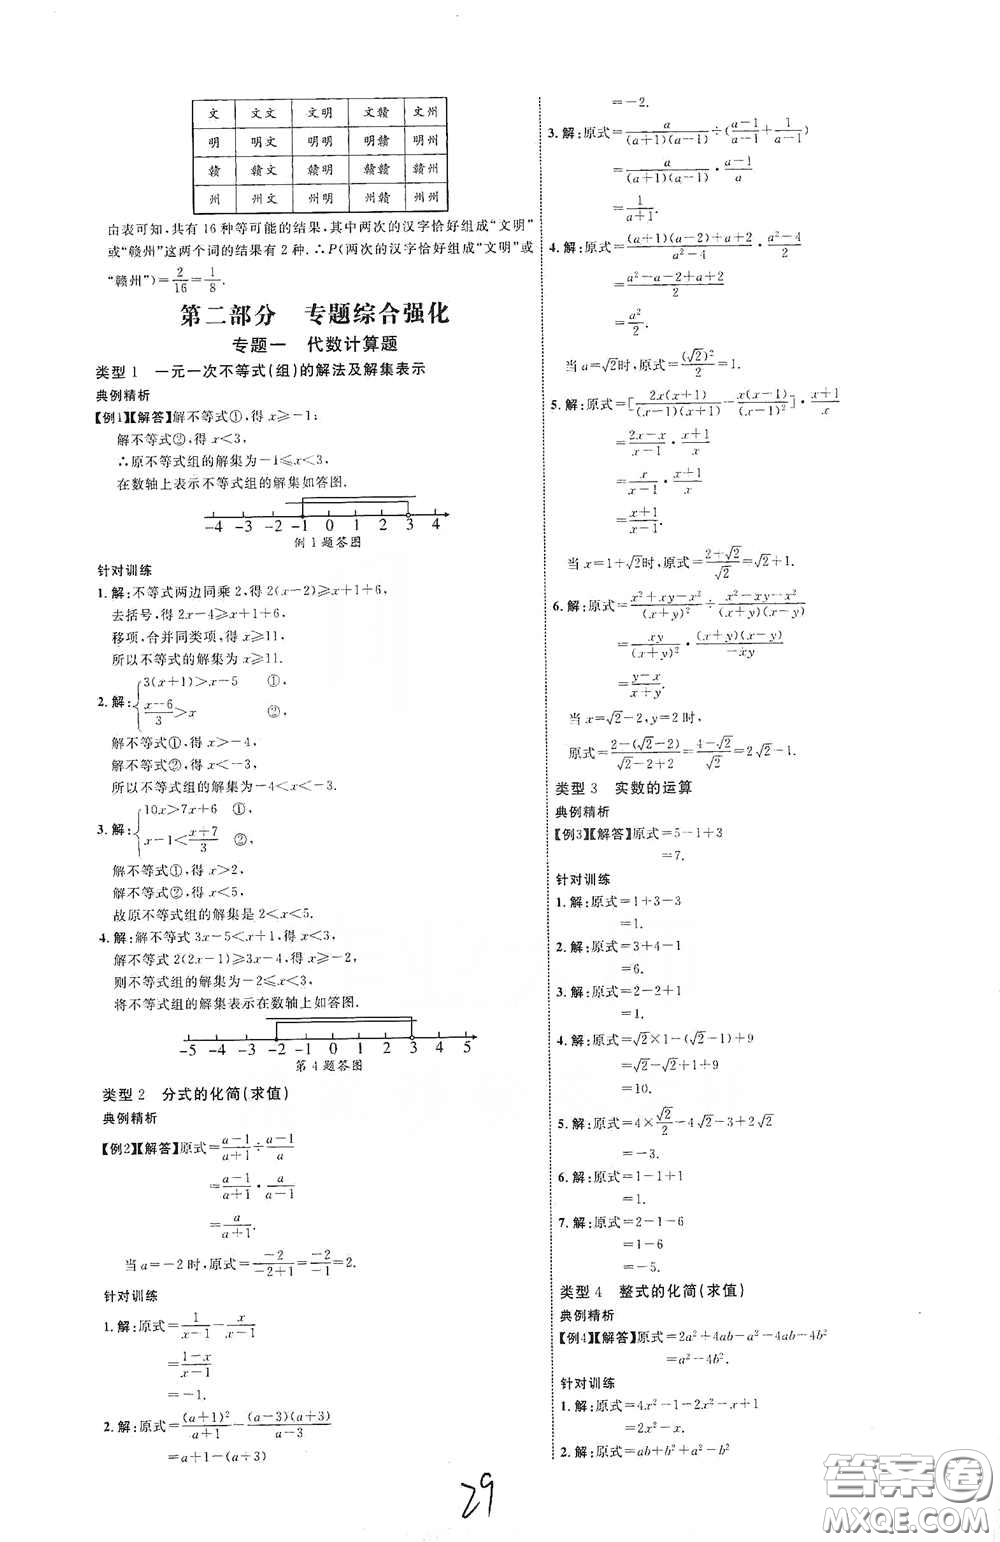 文 文文 文明 文赣 文州
明 明文 明明 明赣 明州
赣 赣文 赣明 赣赣 赣州
州 州文 州明 州赣 州州
由表可知,共有 16 种等可能的结果,其中两次的汉字恰好组成“文明”
或“赣州”这两个词的结果有 2 种. ∴P(两次的汉字恰好组成“文明”或
“赣州”)=2/16=1/8.
第二部分 专题综合强化
专题一 代数计算题
类型 1 一元一次不等式(组)的解法及解集表示
典例精析
【例1】【解答】解不等式①,得 x≥-1;
解不等式②,得 x<3,
∴原不等式组的解集为-1≤x<3,
在数轴上表示不等式组的解集如答图.
-4 -3 -2 -1 0 1 2 3 4
例 1 题答图
针对训练
1. 解:不等式两边同乘 2,得 2(x-2)≥x+1+6,
去括号,得 2x-4≥x+1+6,
移项,合并同类项,得 x≥11,
所以不等式的解集为 x≥11.
2. 解:{3(x+1)>x-5 ①,
(x-6)/3>x ②,
解不等式①,得 x>-4,
解不等式②,得 x<-3,
所以不等式组的解集为-4<x<-3.
3. 解:{10x>7x+6 ①,
x-1<(x+7)/3 ②,
解不等式①,得 x>2,
解不等式②,得 x<5,
故原不等式组的解集是 2<x<5.
4. 解:解不等式 3x-5<x+1,得 x<3,
解不等式 2(2x-1)≥3x-4,得 x≥-2,
则不等式组的解集为-2≤x<3,
将不等式组的解集表示在数轴上如答图.
-5 -4 -3 -2 -1 0 1 2 3 4 5
第 4 题答图
类型 2 分式的化简(求值)
典例精析
【例2】【解答】原式=(a-1)/(a+1)÷(a-1)/a
=(a-1)/(a+1)·a/(a-1)
=a/(a+1).
当 a=-2时,原式=-2/(-2+1)=-2/-1=2.
针对训练
1. 解:原式=1/(x-1)-x/(x-1)
=(1-x)/(x-1)
=-1.
2. 解:原式=(a+1)²/(a+1)-(a-3)(a+3)/(a-3)
=a+1-(a+3)
=-2.
3. 解:原式=a/((a+1)(a-1))÷((a-1)/(a-1)+1/(a-1))
=a/((a+1)(a-1))·(a-1)/a
=1/(a+1).
4. 解:原式=((a+1)(a-2)+a+2)/(a²-4)·(a²-4)/2
=(a²-a-2+a+2)/2
=a²/2.
当 a=√2时,原式=(√2)²/2=1.
5. 解:原式=[2x(x+1)/((x-1)(x+1))-x(x-1)/(x-1)²]·(x+1)/x
=(2x-x)/(x-1)·(x+1)/x
=x/(x-1)·(x+1)/x
=(x+1)/(x-1).
当 x=1+√2时,原式=(2+√2)/√2=√2+1.
6. 解:原式=(x²+xy-x²)/(x+y)²÷(x²-xy-x²)/((x+y)(x-y))
=xy/(x+y)²·(x+y)(x-y)/-xy
=(y-x)/(x+y).
当 x=√2-2,y=2时,
原式=(2-(√2-2))/(√2-2+2)=(4-√2)/√2=2√2-1.
类型 3 实数的运算
典例精析
【例3】【解答】原式=5-1+3
=7.
针对训练
1. 解:原式=1+3-3
=1.
2. 解:原式=3+4-1
=6.
3. 解:原式=2-2+1
=1.
4. 解:原式=√2×1-(√2-1)+9
=√2-√2+1+9
=10.
5. 解:原式=4×√2/2-4√2-3+2√2
=-3.
6. 解:原式=1-1+1
=1.
7. 解:原式=2-1-6
=1-6
=-5.
类型 4 整式的化简(求值)
典例精析
【例4】【解答】原式=2a²+4ab-a²-4ab-4b²
=a²-4b².
针对训练
1. 解:原式=4x²-1-2x²-x+1
=2x²-x.
2. 解:原式=ab+b²+a²-b²
29
答案卷
MXQE.COM